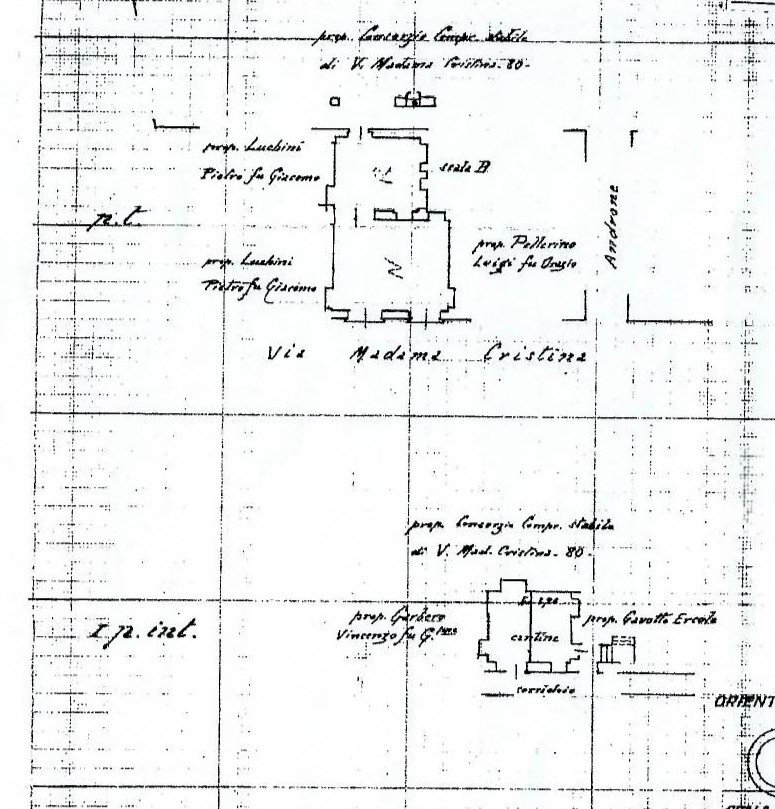 prop. Consorzio Compr. stabile
di V. Madama Cristina - 80 -
prop. Luchini
Pietro fu Giacomo
R
scala B
p.t.
Androne
prop. Pellerino
Luigi fu Orazio
prop. Luchini
Pietro fu Giacomo
N
Via Madama Cristina
prop. Consorzio Compr. stabile
di V. Mad. Cristina - 80 -
prop. Garbero
Vincenzo fu G.
prop. Gavotto Ercole
I p. int.
cantina
corridoio
ORIENT